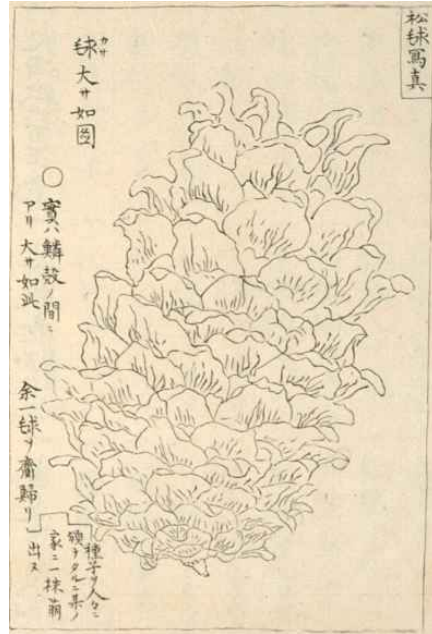 松毬寫真
毬大サ如図
カサ
○實ハ鱗殼ノ間ニ
アリ大サ如此
余一毬ヲ齎歸リ
種子ヲ人々ニ
頒チタルニ某ノ
家ニ一株萠
出ス